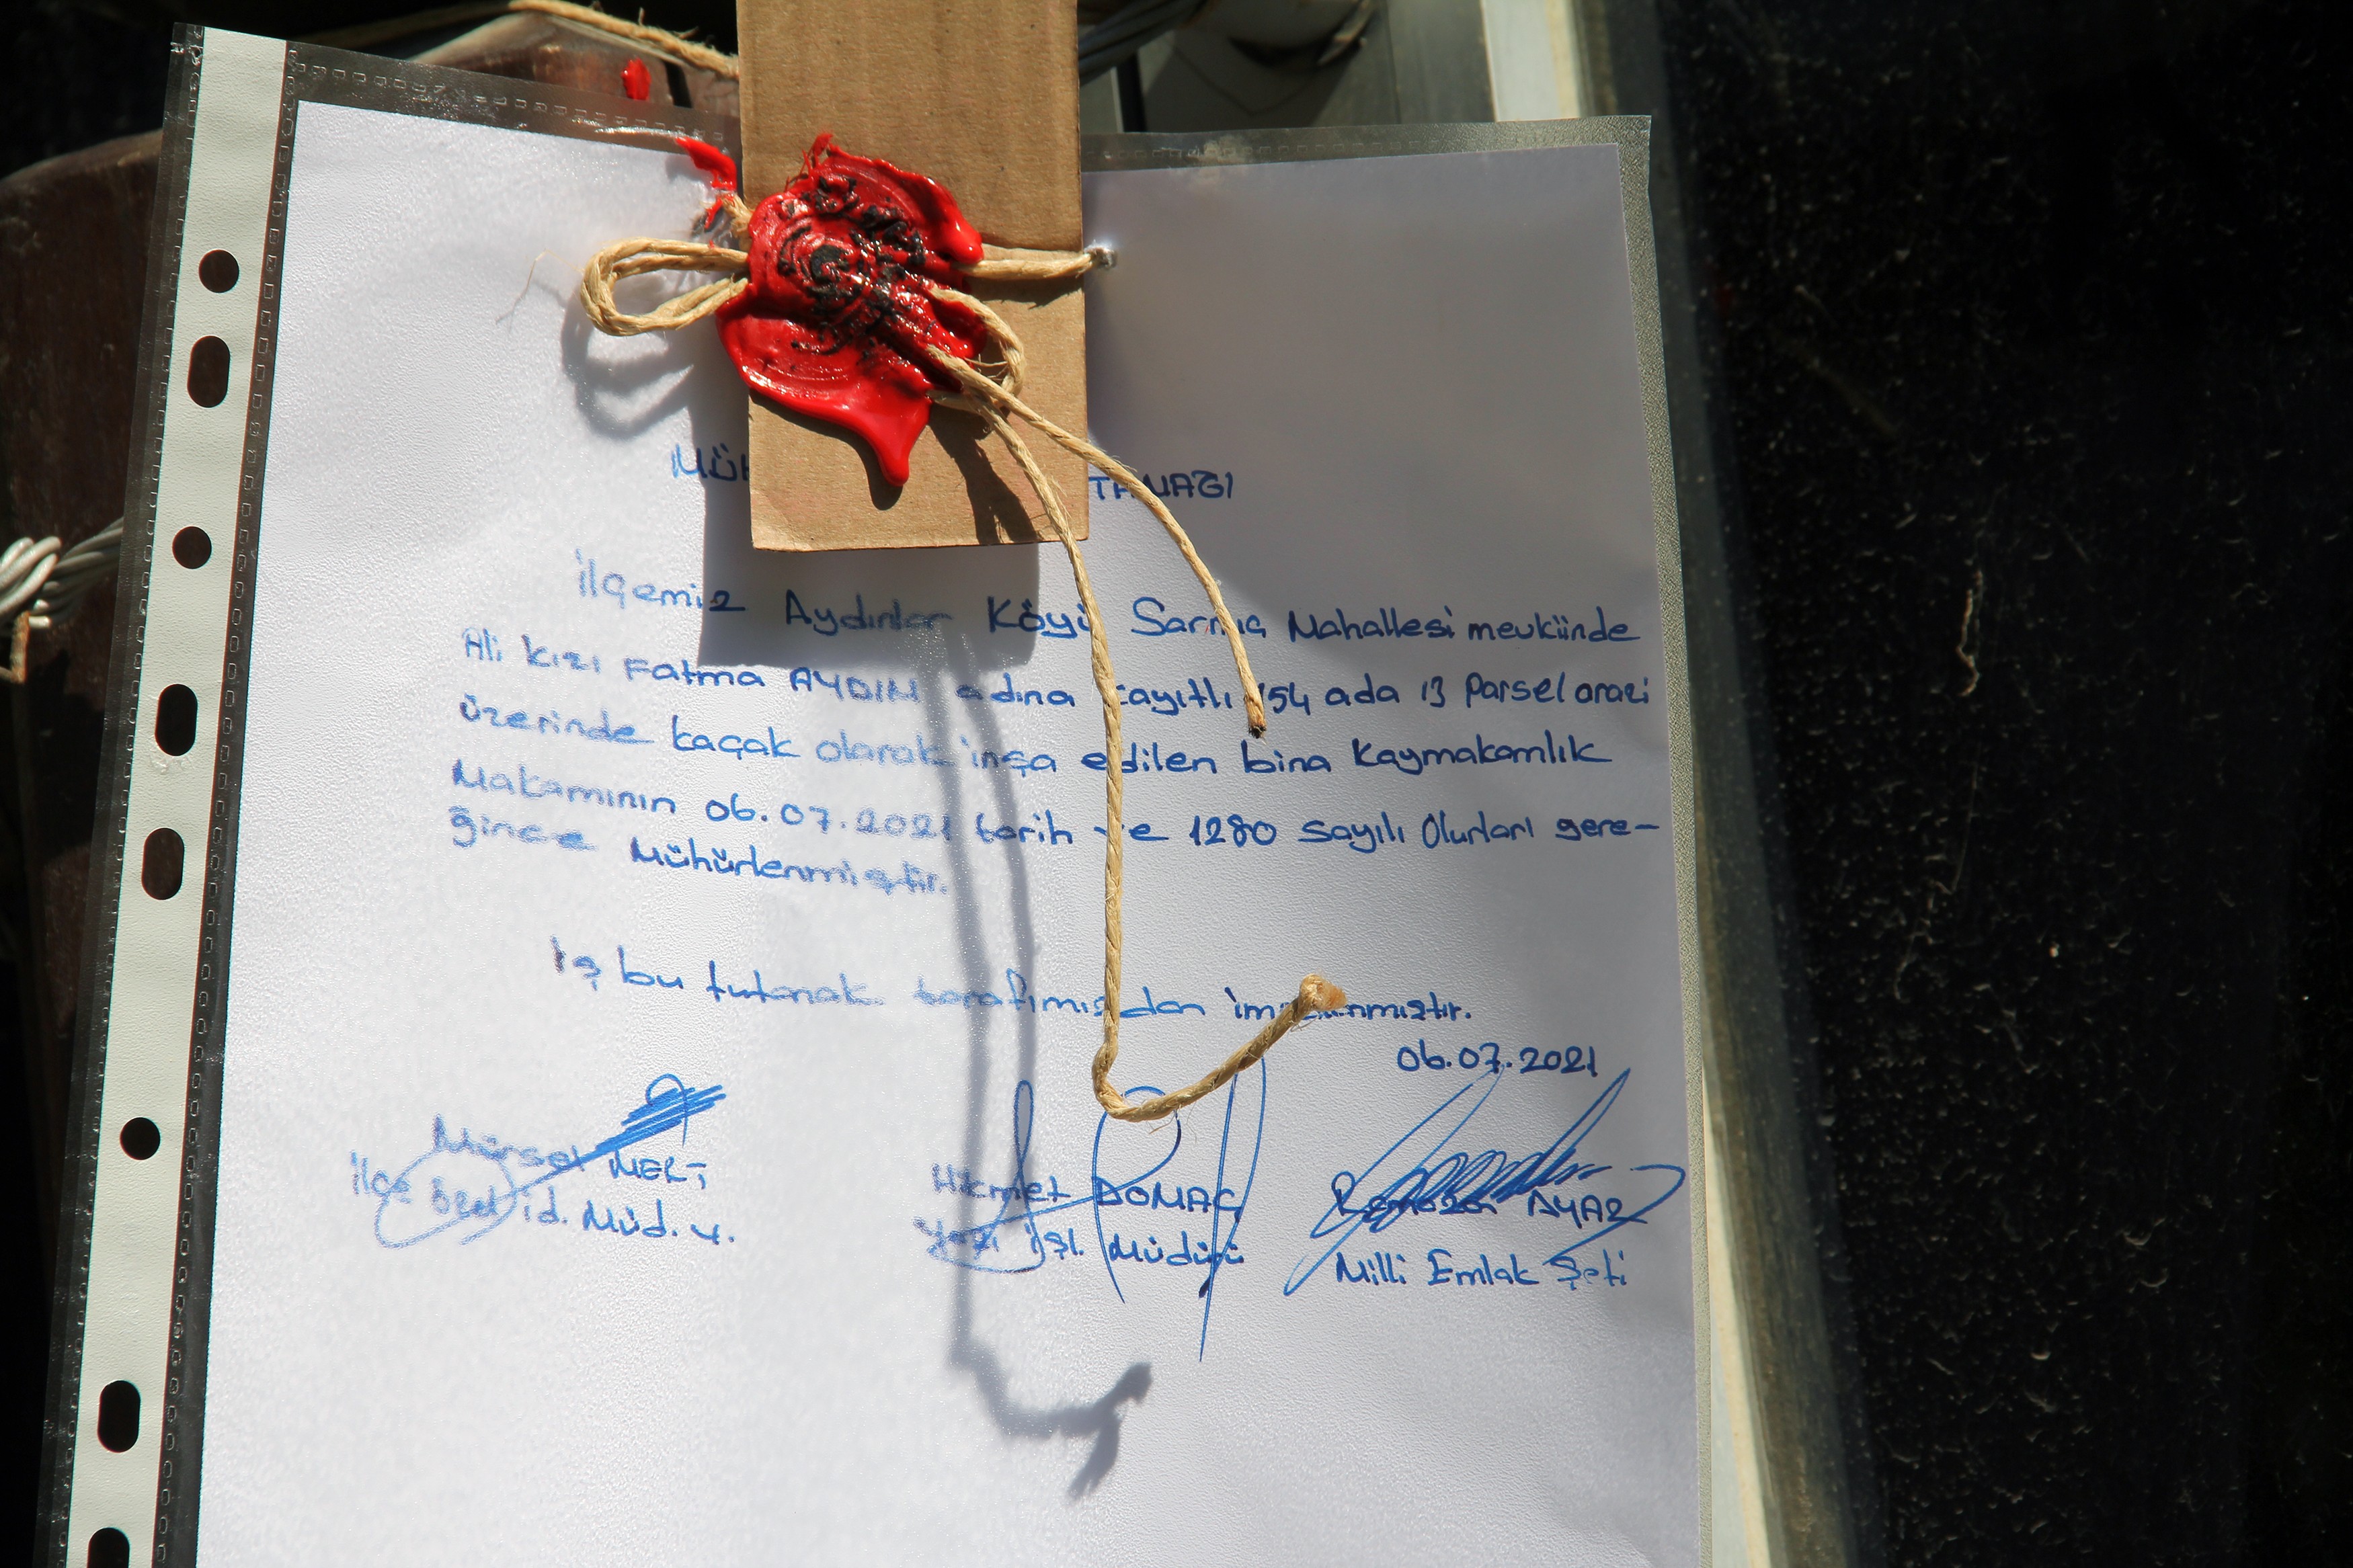 TANAĞI
İlçemiz Aydınlar Köyü Sarmaç Mahallesi mevkiinde
Ali kızı Fatma AYDIN adına kayıtlı 154 ada 13 Parsel arazi
üzerinde kaçak olarak inşa edilen bina Kaymakamlık
Makamının 06.07.2021 tarih ve 1280 sayılı Olurları gere-
ğince Mühürlenmiştir.
İş bu tutanak tarafımızdan imzalanmıştır.
06.07.2021
Mürsel MERT Hikmet DOMAÇ Ramazan AYAZ
İlçe Özel id. Müd. V. Yazı İşl. Müdürü Milli Emlak Şefi